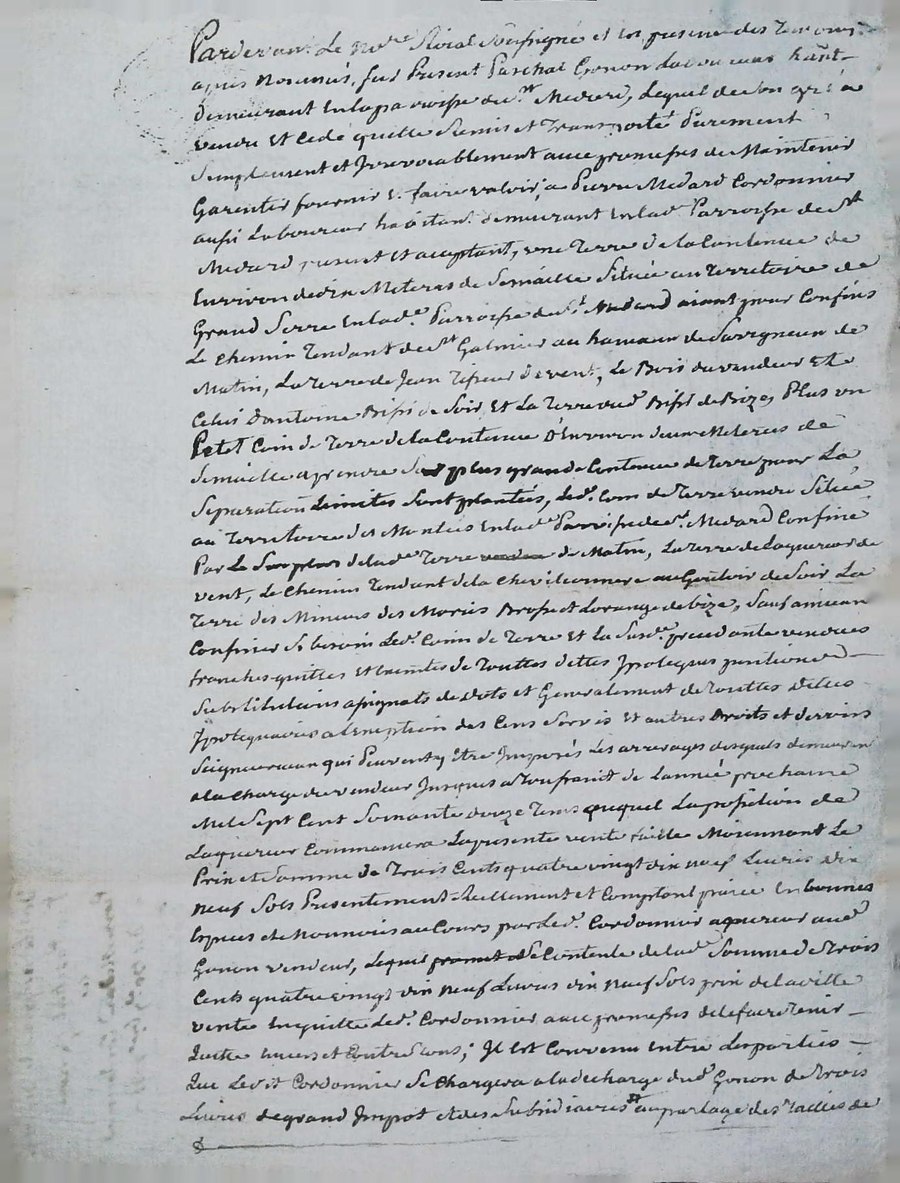 Pardevant Le no.re Roial Soussigné et en presence des Temoins
apres Nommés, fut Present Paschal Gonon Laboureur habt.
Demeurant En la parroisse de St. Medard, Lequel de son gré a
vendu Et Cedé quitté Remis et Transporté Purement
Simplement et Irrevocablement avec promesses de Maintenir
Garentir fournir Et faire valoir, a Pierre Medard Cordonnier
aussi Laboureur habitant demeurant En lad.e Parroisse de St
Medard present Et acceptant, une Terre de la Contenue de
Environ Meteras de Semaille Située au Territoire de
Grand Serre En lad.e Parroisse de St. Medard aiant pour Confins
Le Chemin Tendant de St Galmier au hameau de de
Matin, La Terre de Jean Tisseur de vent, Le Bois du vendeur Et
Celui D'antoine de Soir Et La Terre dud. de Bize, Plus un
Petit Coin de Terre de la Contenue D'Environ deux Meteras de
Semaille a prendre Sur plus grande Contenue de Terre pour La
Separation Limites Sont plantées, Led. Coin de Terre vendu Situé
au Territoire des Montées En lad.e Parroisse de St. Medard Confiné
Par Le Surplus de lad.e Terre de Matin, La Terre de Laquereur de
vent, Le Chemin Tendant de la au de Soir La
Terre des Mineurs des Mariés Brosse et Lorange de bize, Sauf a mieux
Confiner Si besoin Led. Coin de Terre Et La Susd.e vendues
franches quittes Et Exemtes de Touttes dettes Ypoteques pentions
Substitutions assignats de Dots et Generalement de Touttes Dettes
Ypotequaires a L'Exeption des Cens Servis Et autres Droits et devoirs
Seigneuriaux qui Peuvent y Etre Imposés Les arrerages desquels demeurent
a la Charge du vendeur Jusques a Toussaint de L'année prochaine
Mil Sept Cent Soixante douze Tems auquel La possession de
Laquereur Commancera La presente vente faitte Moiennant Le
Prix et Somme de Trois Cents quatre vingt dix neuf Livres dix
neuf Sols Presentement Reellement et Comptant paiée En bonnes
Especes de Monnoies au Cours par Led. Cordonnier aquereur aud.
Gonon vendeur, Lequel Contente de lad.e Somme de Trois
Cents quatre vingt dix neuf Livres dix neuf Sols prix de laditte
vente En quitte Led. Cordonnier avec promesses de le faire Tenir
Quitte Envers et Contre Tous; Il Est Convenu Entre Les parties
Que Ledit Cordonnier Se Chargera a la decharge dud. Gonon de Trois
Livres de grand Impot et des Subsidiaires au partage des Tailles de